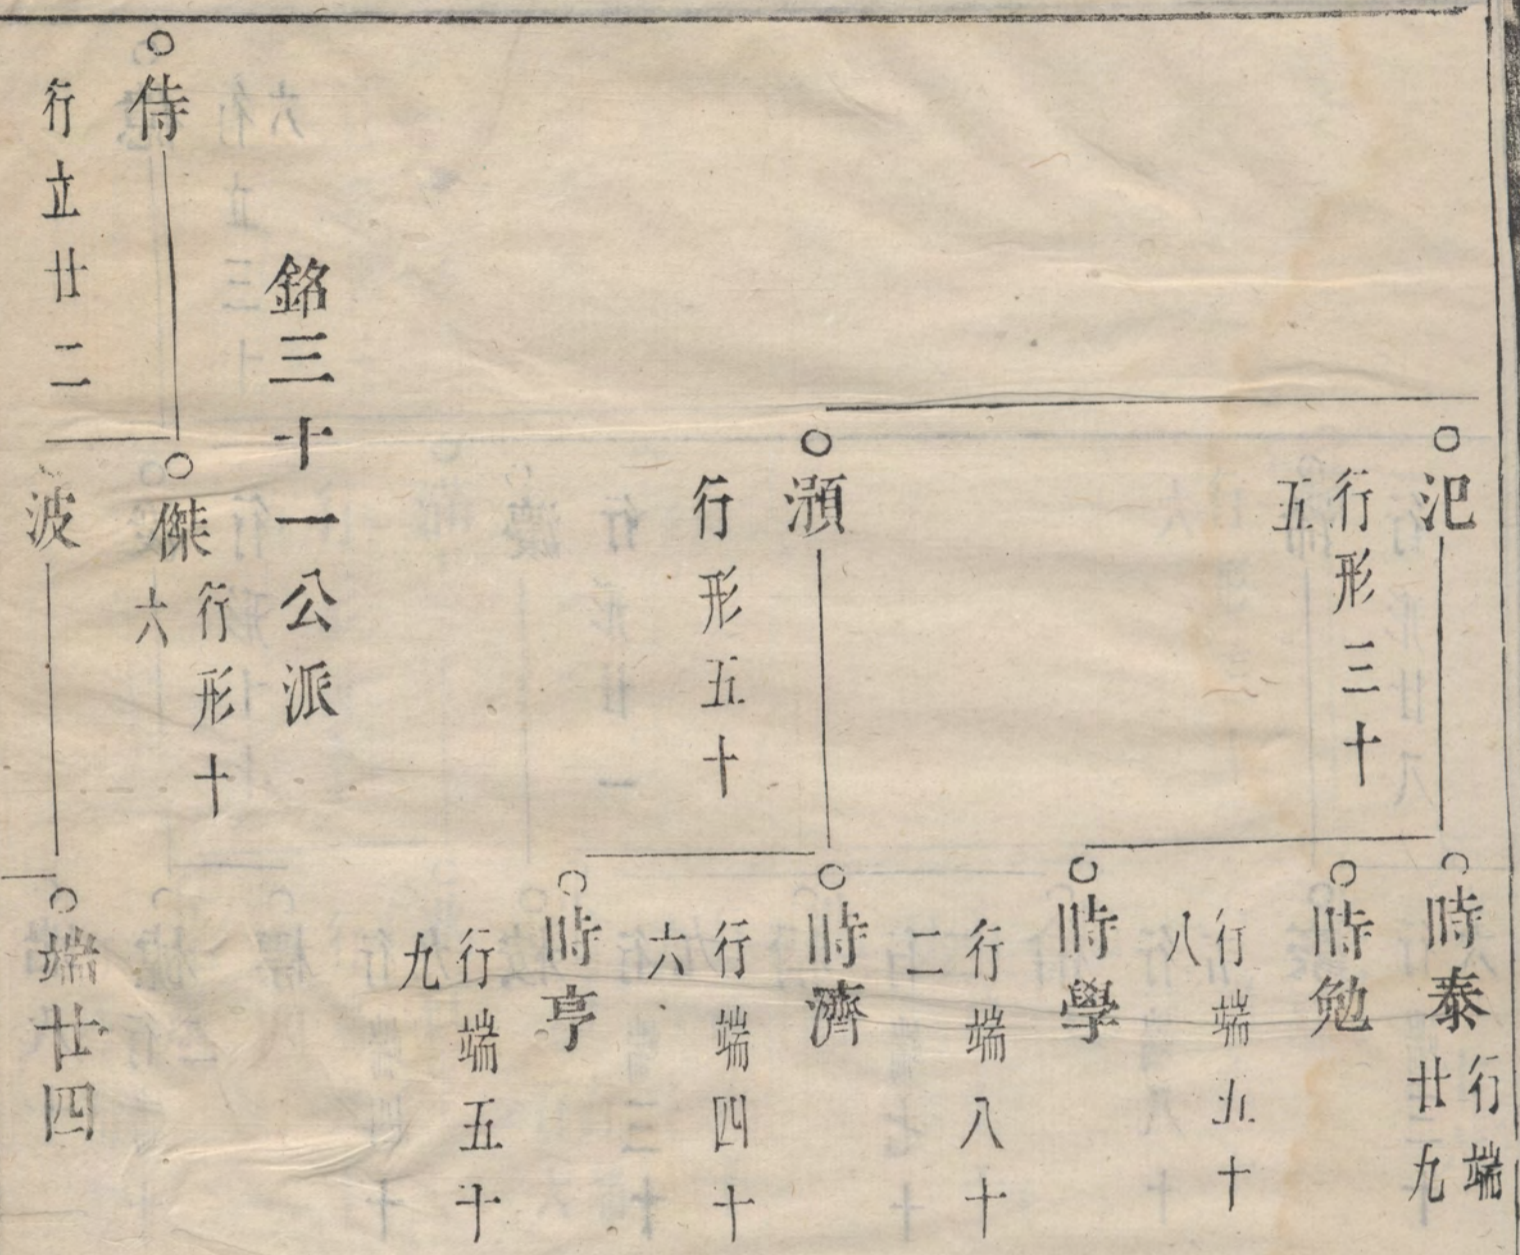 汜
行形三十
五
時泰
行端
廿九
時勉
行端五十
八
時學
行端八十
二
澦
行形五十
時濟
行端四十
六
時亨
行端五十
九
銘三十一公派
侍
行立廿二
傑
行形十
六
波
端廿四